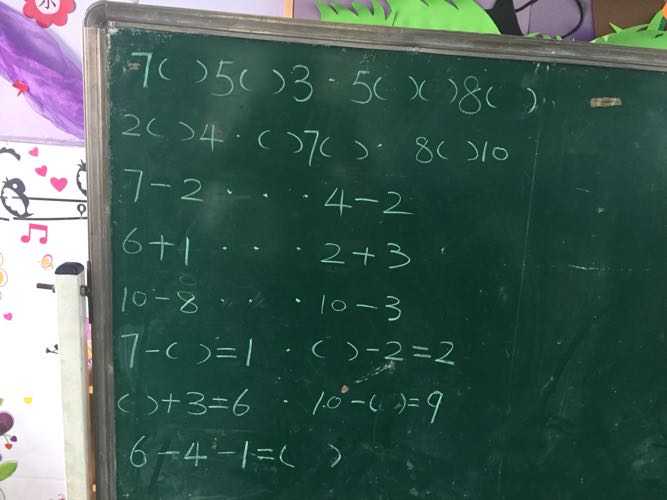 7( )5( )3 · 5( )( )8( )
2( )4 · ( )7( ) · 8( )10
7-2 · · · 4-2
6+1 · · · 2+3
10-8 · · · 10-3
7-( )=1 · ( )-2=2
( )+3=6 · 10-( )=9
6-4-1=( )